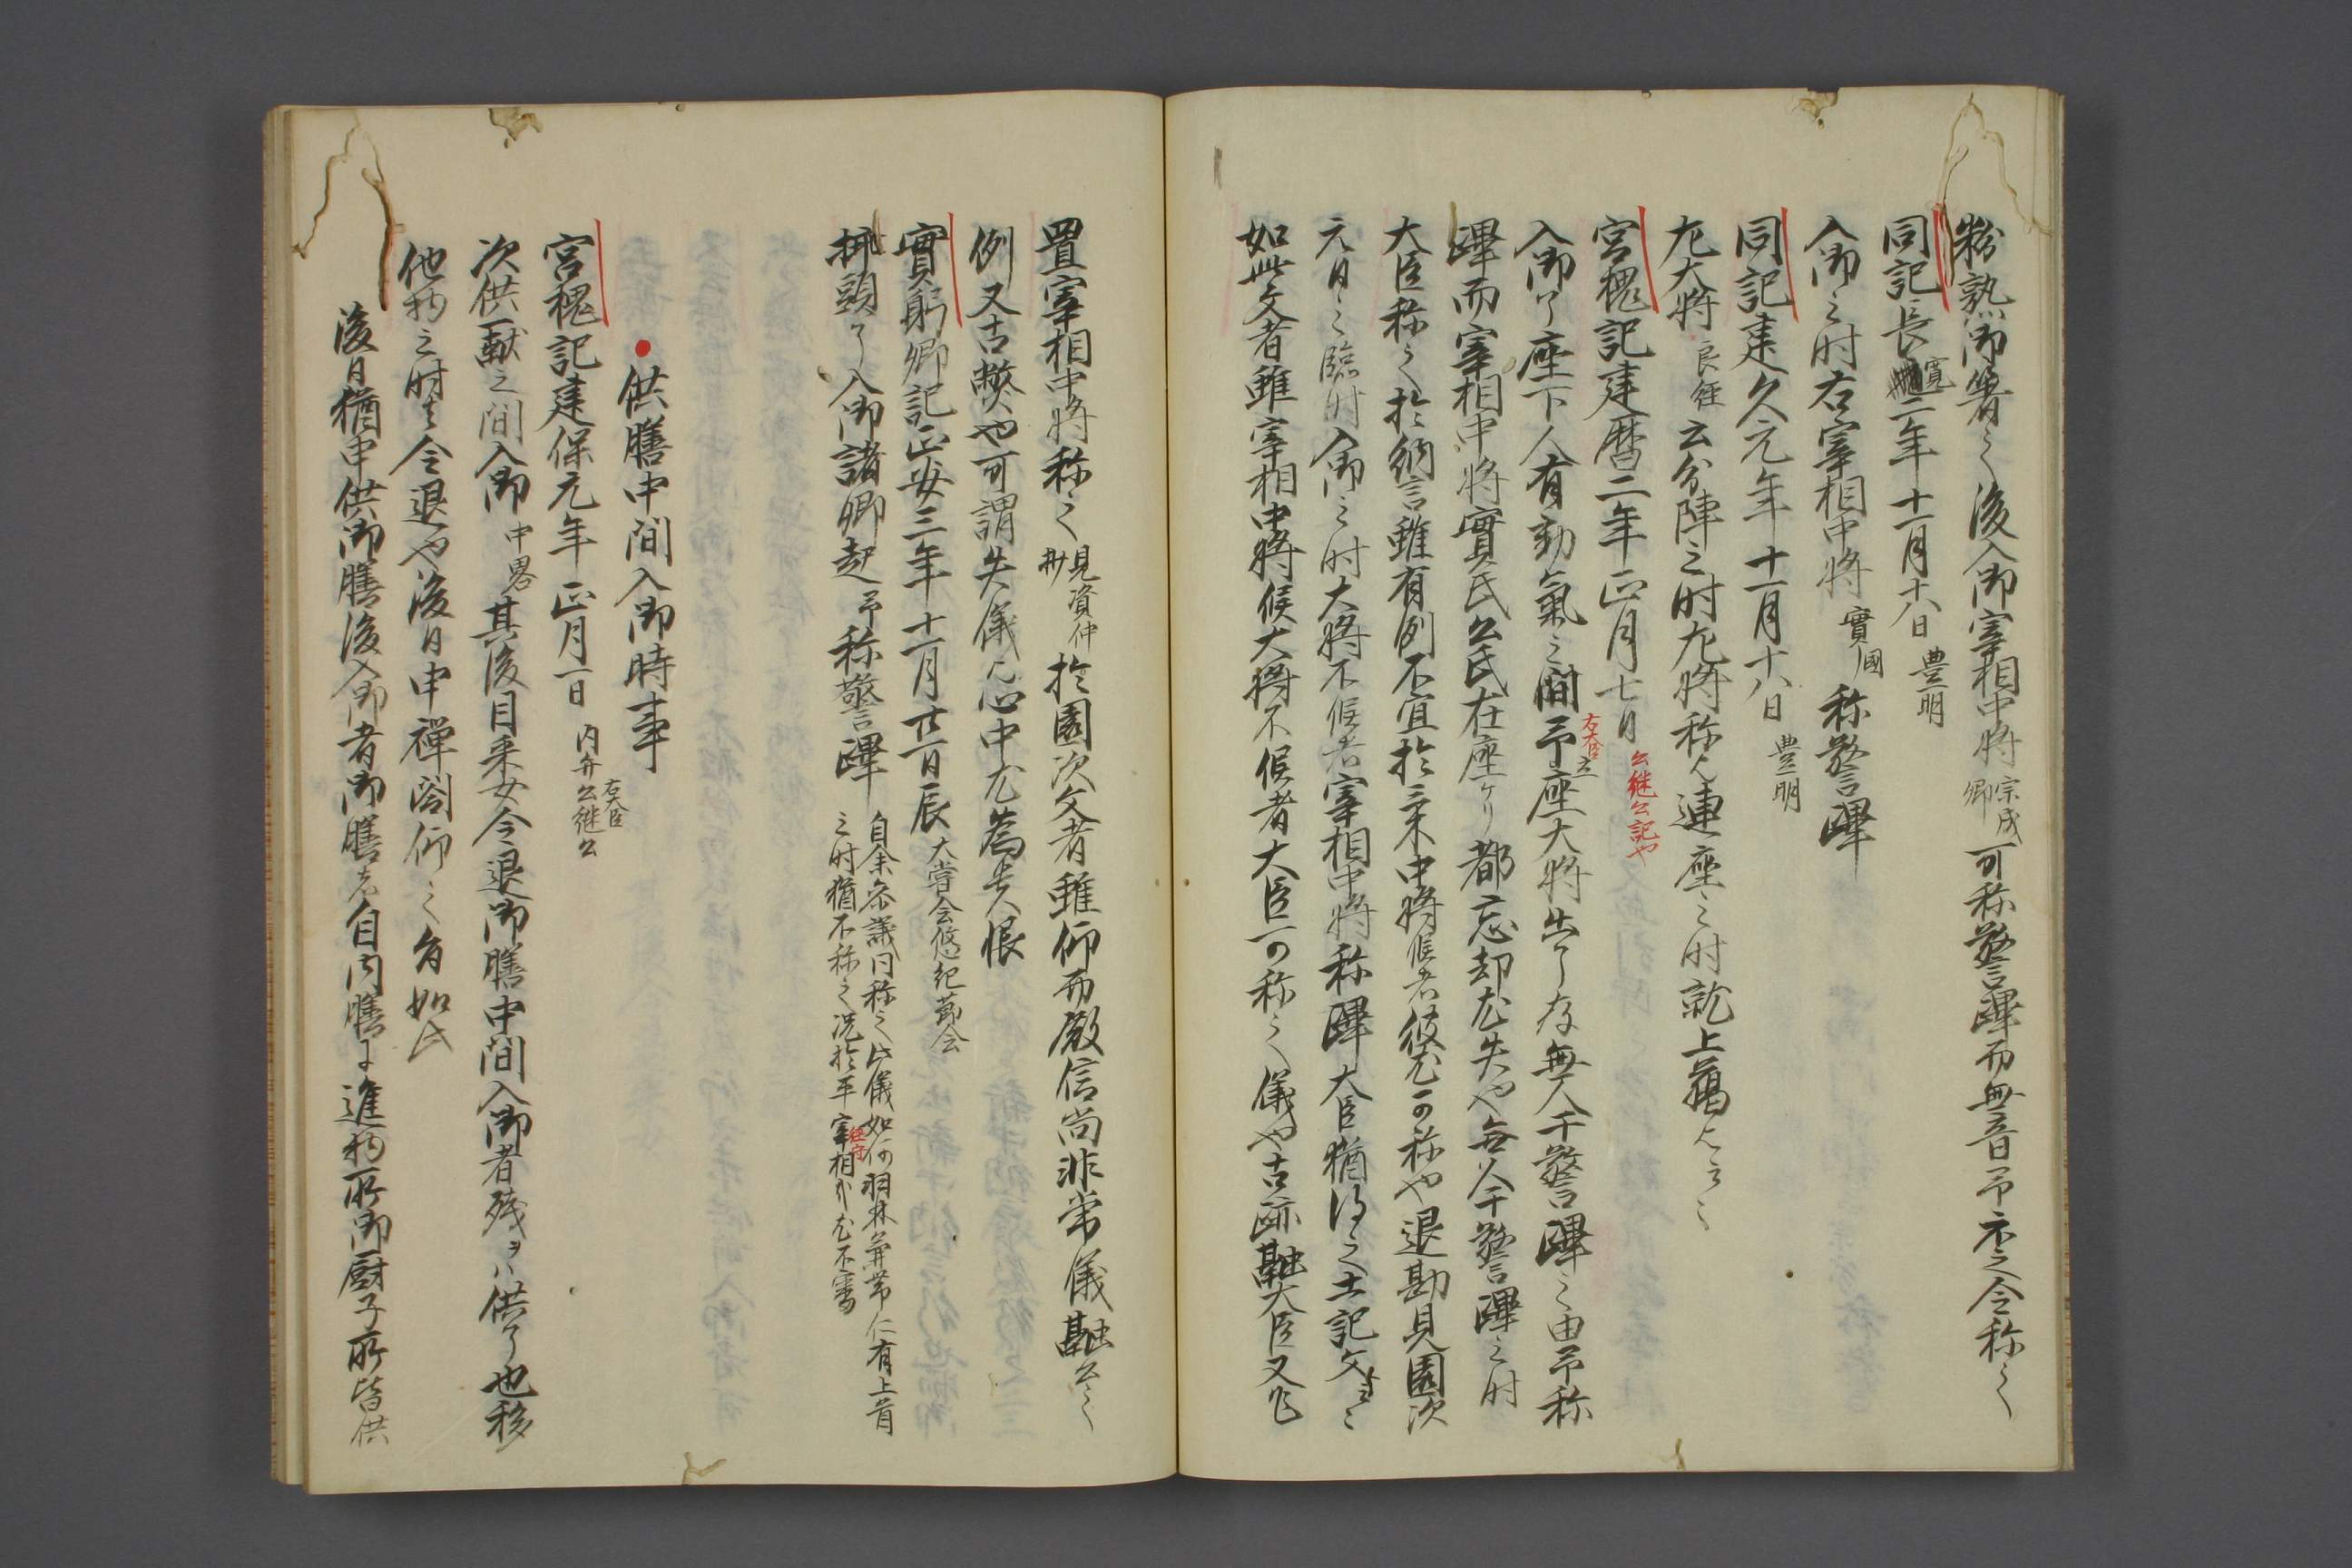 粉熟御箸之後入御宰相中将宗成卿可称警蹕而無音予示之令称之
同記長寛二年十一月十八日豊明
入御之時右宰相中将實國称警蹕
同記建久元年十一月十八日豊明
左大将良経云分陣之時左将称之連座之時就上臈云々
宮槐記建暦二年正月七日公継公記也
入御了座下人有動氣之間予右大臣座大将出了存無人于警蹕之由予称
蹕而宰相中将實氏公氏在座ケリ都忘却尤失也無人于警蹕之時
大臣称之於納言雖有例不宜於宰相中将候者彼尤可称也退勘見園次
元日之臨時入御之時大将不候者宰相中将称蹕大臣猶得之土記文
如此文者雖宰相中将候大将不候者大臣可称之儀也古跡融大臣又
置宰相中将称之見資仲抄於園次文者雖仰而厳信尚非常儀融公之
例又古弊也可謂失儀心中尤為失恨
實躬卿記正安三年十一月廿一日辰大嘗会悠紀節会
挿頭了入御諸卿起予称警蹕自余参議同称之此儀如何羽林兼帯仁有上首
之時猶不称之况於平宰相経守哉尤不審
供膳中間入御時事
宮槐記建保元年正月一日内弁右大臣公継公
次供一献之間入御中畧其後目采女令退御膳中間入御者残ヲハ供了也移
他物之時者令退也後日申禅閤仰之旨如此
後日猶申供御膳後入御者御膳者自内膳等進物所御厨子所皆供